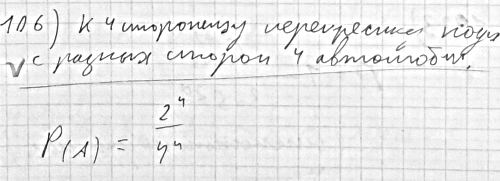 106) К 4 стороннему перекрестку подъ
с разных сторон 4 автомобил.
P(A) = 2⁴ / 4⁴